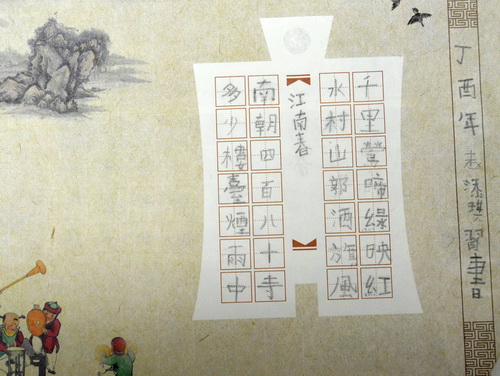 丁酉年習書
千里鶯啼綠映紅
水村山郭酒旗風
江南春
南朝四百八十寺
多少樓臺煙雨中